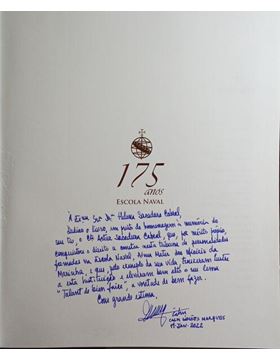 175
anos
ESCOLA NAVAL
À Exma Srª Dª Helena Sacadura Cabral,
Dedico o livro, em preito de homenagem à memória do
seu tio, o CA Artur Sacadura Cabral, que, por mérito próprio,
conquistou o direito a constar nesta tribuna de personalidades
formadas na Escola Naval, Alma Mater dos oficiais da
Marinha, e que, pelo exemplo da sua vida,
a esta Instituição e elevaram bem alto o seu lema
"Talant de bien faire", a vontade de bem fazer.
Com grande estima,
CALM SIMÕES MARQUES
19 JAN. 2022